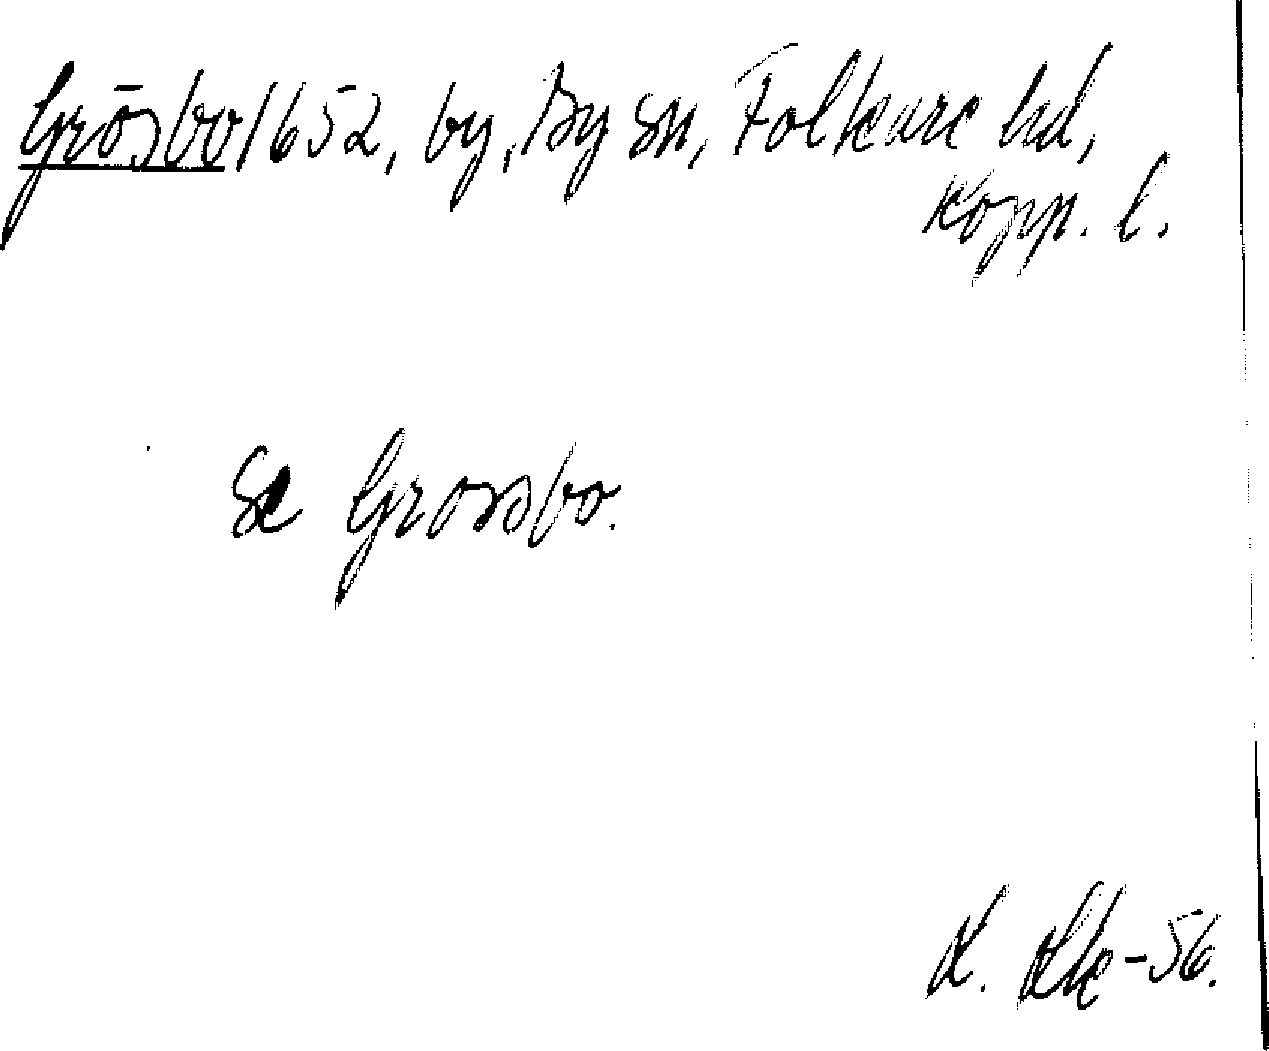 Grösbo 1652, by, By sn, Folkare hd,
Kopp. l.
Se Grossbo.
-56.